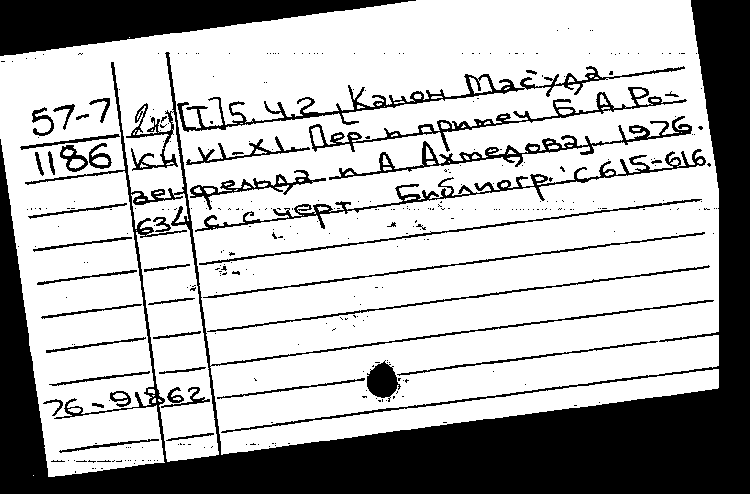 57-7
1186
2кз [Т.] 5. Ч.2 [Канон Мас'уда.
Кн. VI-XI. Пер. и примеч Б. А. Ро-
зенфельда и А. Ахмедова] 1976.
634 с. с черт. Библиогр.: с 615-616.
76-91862